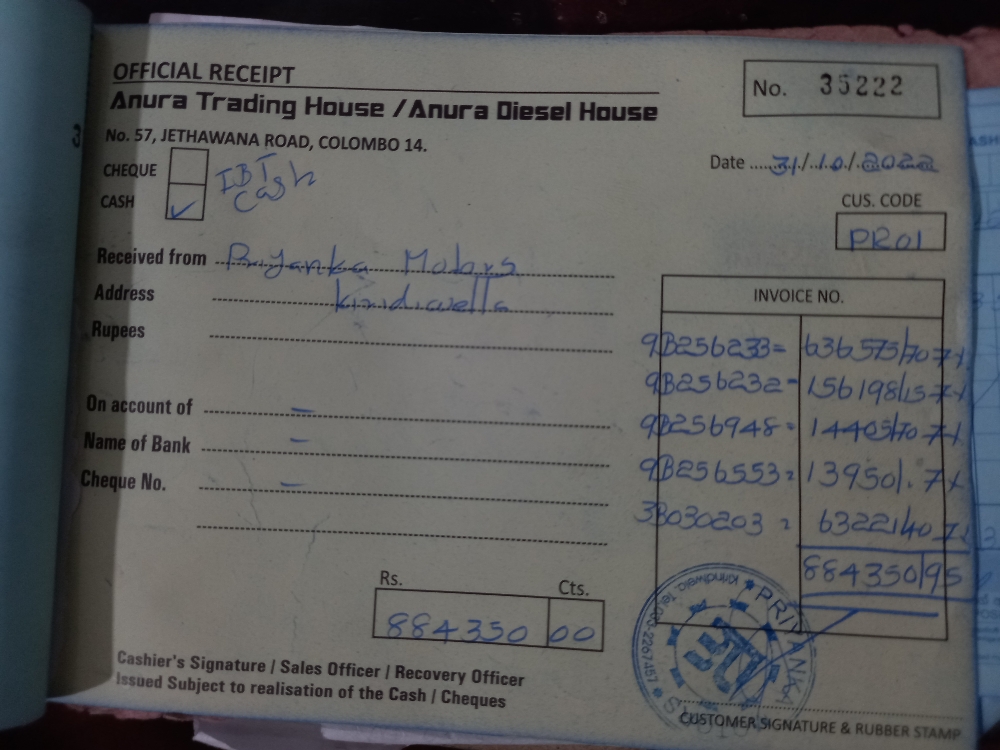 OFFICIAL RECEIPT
No. 35222
Anura Trading House / Anura Diesel House
No. 57, JETHAWANA ROAD, COLOMBO 14.
Date 31/10/2022
CHEQUE
IBT
CASH ✓
Cash
CUS. CODE
PR01
Received from Priyanka Motors
Address Kirindiwella
Rupees
INVOICE NO.
9B256233= 636575/70 7%
9B256232= 156198/15 7%
On account of –
9B256948= 14405/70 7%
Name of Bank –
9B256553= 13950/. 7%
Cheque No. –
3B030203 = 63221/40 7%
884350/95
Rs. Cts.
884350 00
Cashier's Signature / Sales Officer / Recovery Officer
Issued Subject to realisation of the Cash / Cheques
PRIYANKA
CUSTOMER SIGNATURE & RUBBER STAMP